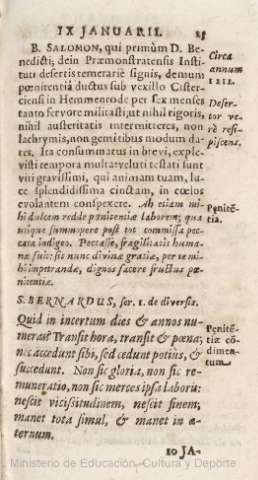 IX JANUARII. 25
B. SALOMON, qui primùm D. Be-
nedicti, dein Præmonstratensis Insti-
tuti desertis temerariè signis, demum
pœnitentiâ ductus sub vexillo Cister-
ciensi in Hemmenrode per sex menses
tanto fervore militasti, ut nihil rigoris,
nihil austeritatis intermitteres, non
lachrymis, non gemitibus modum da-
res. Ita consummatus in brevi, explê-
visti tempora multa: veluti testati sunt
viri gravissimi, qui animam tuam, lu-
ce splendidissima cinctam, in cœlos
evolantem conspexere.
Ah etiam mi-
hi dulcem redde pœnitentiæ laborem; qua
utique summopere post tot commissa pec-
cata indigeo. Peccasse, fragilitatis huma-
næ fuit: sit nunc divinæ gratiæ, per te mi-
hi impetrandæ, dignos facere fructus pœ-
nitentiæ.
Circa
annum
1212.
Deser-
tor ve-
rè resi-
piscens.
Penitē-
tia.
S. BERNARDUS, ser. 1. de diversis.
Quid in incertum dies & annos nu-
meras? Transit hora, transit & pœna;
nec accedunt sibi, sed cedunt potiùs, &
succedunt. Non sic gloria, non sic re-
muneratio, non sic merces ipsa laboris:
nescit vicissitudinem, nescit finem;
manet tota simul, & manet in æ-
ternum.
Penitē-
tiæ cō-
dimen-
tum.
10 JA-
Ministerio de Educación, Cultura y Deporte